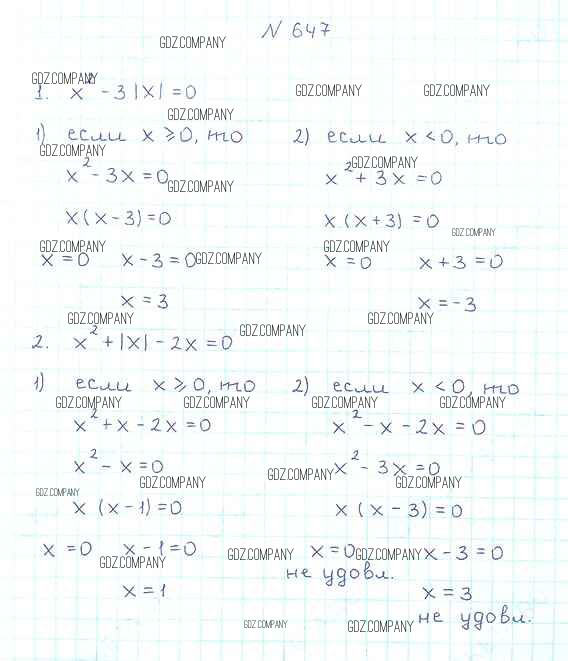 N 647
GDZ.COMPANY
GDZ.COMPANY
1. x² - 3|x| = 0 GDZ.COMPANY GDZ.COMPANY
GDZ.COMPANY
1) если x ≥ 0, то 2) если x < 0, то
GDZ.COMPANY GDZ.COMPANY
x² - 3x = 0 x² + 3x = 0
GDZ.COMPANY
x(x - 3) = 0 x(x + 3) = 0
GDZ.COMPANY
GDZ.COMPANY GDZ.COMPANY
x = 0 x - 3 = 0 GDZ.COMPANY x = 0 x + 3 = 0
x = 3 x = -3
GDZ.COMPANY GDZ.COMPANY
GDZ.COMPANY
2. x² + |x| - 2x = 0
1) если x ≥ 0, то 2) если x < 0, то
GDZ.COMPANY GDZ.COMPANY GDZ.COMPANY GDZ.COMPANY
x² + x - 2x = 0 x² - x - 2x = 0
x² - x = 0 x² - 3x = 0
GDZ.COMPANY GDZ.COMPANY GDZ.COMPANY
GDZ.COMPANY
x (x - 1) = 0 x (x - 3) = 0
x = 0 x - 1 = 0 GDZ.COMPANY x = 0 GDZ.COMPANY x - 3 = 0
GDZ.COMPANY не удовл.
x = 1 x = 3
не удовл.
GDZ.COMPANY GDZ.COMPANY